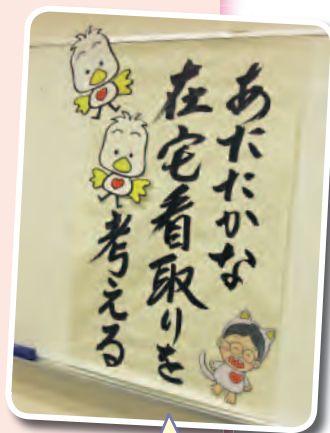 あたたかな
在宅看取りを
考える